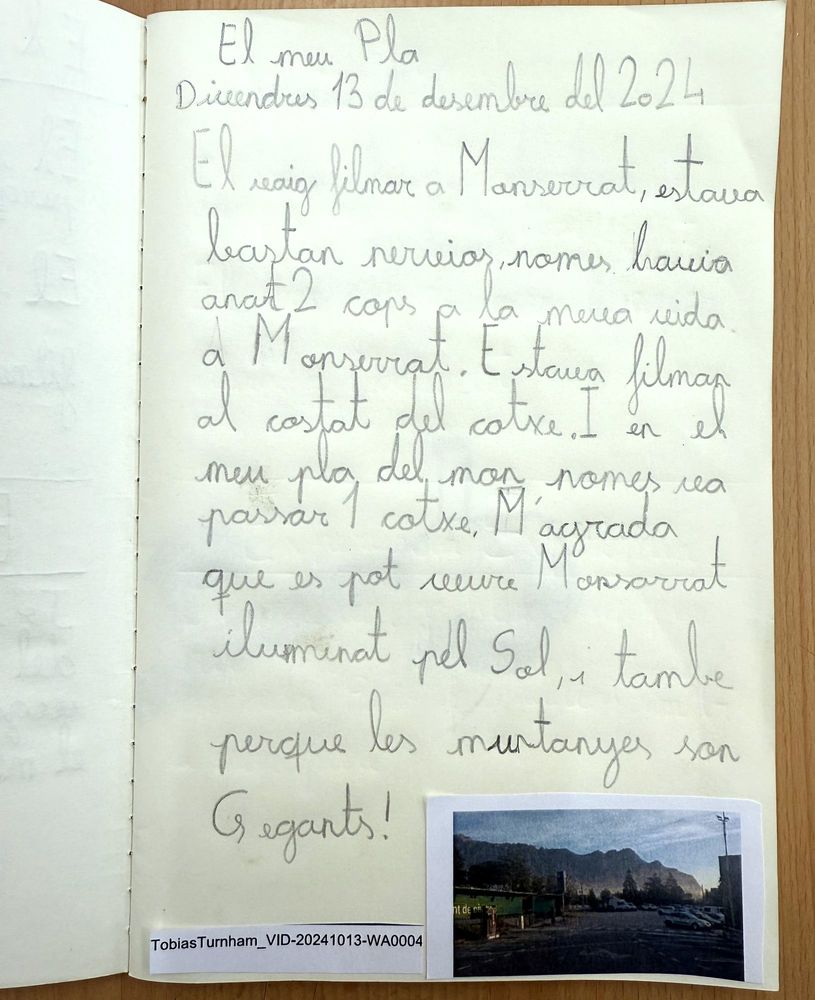 El meu Pla
Divendres 13 de desembre del 2024
El vaig filmar a Monserrat, estava
bastan nervios, nomes havia
anat 2 cops a la meva vida
a Monserrat. Estava filman
al costat del cotxe. I en el
meu pla del mon, nomes va
passar 1 cotxe. M'agrada
que es pot veure Monsarrat
iluminat pel Sol, i tambe
perque les muntanyes son
Gegants!
nt de
TobiasTurnham_VID-20241013-WA0004